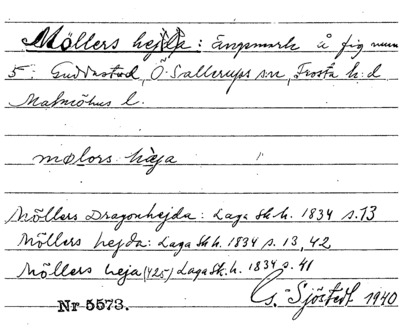 Möllers hejda: Ängsmark å fig num
5: Guddastad, Ö. Sallerups sn, Frosta h:d
Malmöhus l.
mølors hɛja
Möllers Dragonhejda: Laga Sk.h. 1834 s.13
Möllers hejda: Laga Sk.h. 1834 s. 13, 42
Möllers heja (425) Laga Sk.h. 1834 s. 41
G. Sjöstedt 1940
Nr 5573.